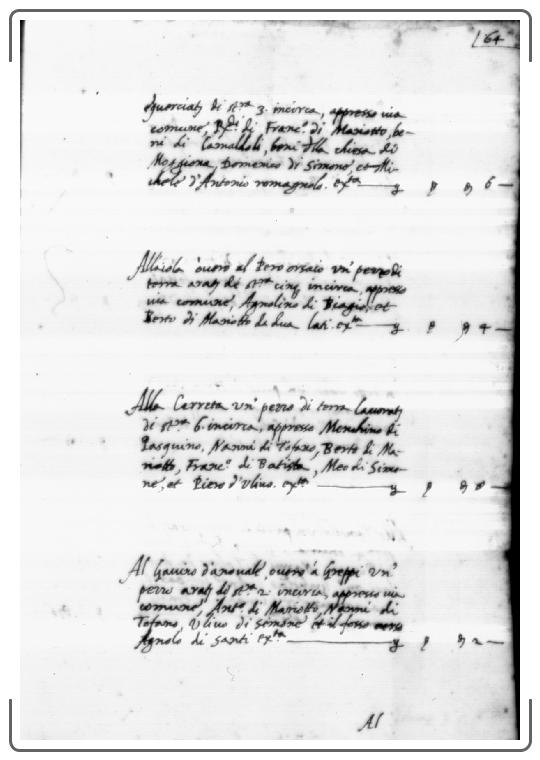 164
querciata di st.ra 3. incirca, appresso via
comune, R.di di Franc.o di Mariotto, be-
ni di Camaldoli, beni d'lla chiesa di
Moggiona, Domenico di Simone, et Mi-
chele d'Antonio romagnolo. ex.ta 6 —
Allaiola overo al Pero orsaio un' pezzo di
terra arat.a di st.ra cinq. incirca, appresso
via comune, Agnolino di Biagio, et
Berto di Mariotto da dua lati. ex.ta 4 —
Alla Carreta un' pezzo di terra lavorat.a
di st.ra 6. incirca, appresso Menchino di
Pasquino, Nanni di Tofano, Berto di Ma-
riotto, Franc.o di Batista, Meo di Simo-
ne, et Piero d'Ulivo. ex.ta 8 —
Al d'anovale, overo á Greppi un'
pezzo arat.o di st.ra 2 incirca, appresso via
comune, Ant.o di Mariotto, Nanni di
Tofano, Ulivo di Simone et il fosso verso
Agnolo di Santi ex.ta 2 —
Al